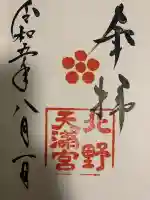 奉拝
北野
天満宮
令和六年八月一日